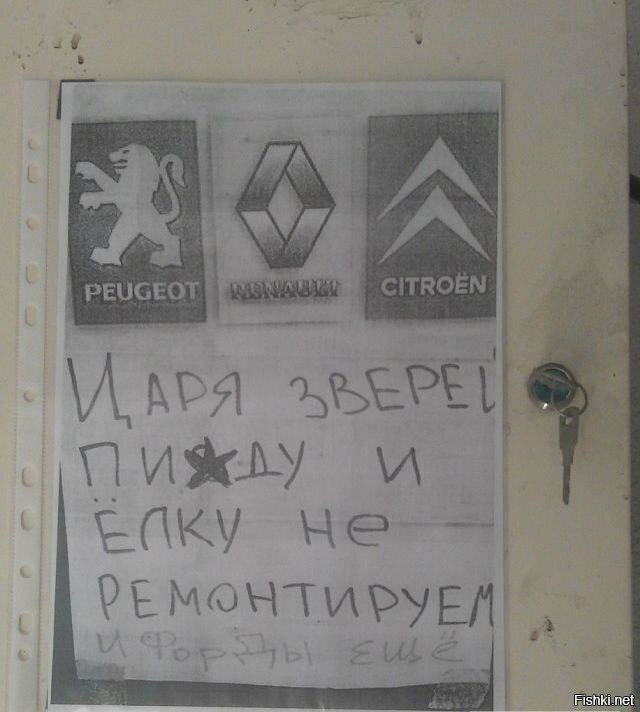 PEUGEOT RENAULT CITROËN
ЦАРЯ ЗВЕРЕЙ
ПИ★ДУ И
ЁЛКУ НЕ
РЕМОНТИРУЕМ
И ФОРДЫ ЕЩЁ
Fishki.net
Fishki.net